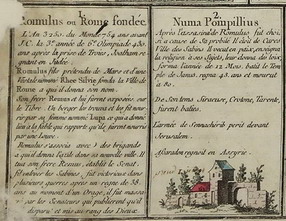 1.
Romulus ou Rome fondée.
L'An 3250. du Monde, 754 ans avant
J.C. la 3e année de 6e Olimpiade 430
ans après la prise de Troie,
gnant en Judée.
Romulus fils prétendu de Mars et d'une
Vestale nommée Rhee Silvie fonda la Ville de
Rome a qui il donna son nom.
Son frere Remus et lui furent exposés sur
le Tibre. Un berger les trouva et les fit nour-
rir par sa femme nommée Lupa ce qui a donné
lieu à la fable qui rapporte qu'ils furent nourris
par une louve.
Romulus s'associa avec des brigands
a qui il donna Exile dans sa nouvelle ville. Il
tua son frere Remus, établit le Senat,
fit enlever les Sabines, fut victorieux dans
plusieurs guerres après un regne de 38.
ans au moment d'un Orage, il fut massa-
cré par les Senateurs qui publierent qu'il
disparut et mis au rang des Dieux.
2.
Numa Pompillius
Après l'assassinat de Romulus fut choi-
si a cause de sa probité Natif de Cures
Ville des Sabins. Il vecut en paix, enseigna
la religion à ses Sujets, leur donna des loix,
forma l'année de 12 Mois, batit le Tem-
ple de Janus. regna 43. ans et mourut
a 80.
De son tems Siracuse, Crotone, Tarente,
furent baties.
L'armée de Sennacherib perit devant
Jerusalem.
Assaradon regnoit en Assyrie.